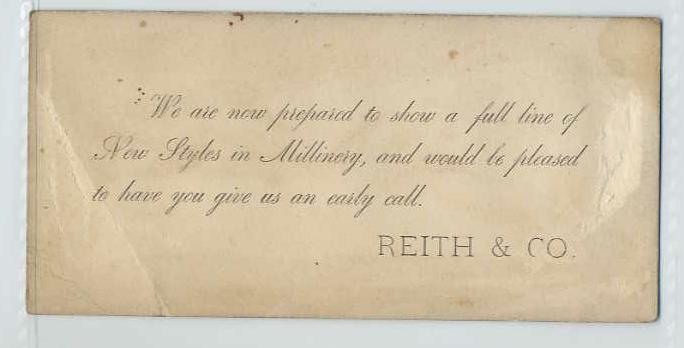 We are now prepared to show a full line of
New Styles in Millinery, and would be pleased
to have you give us an early call.
REITH & CO.